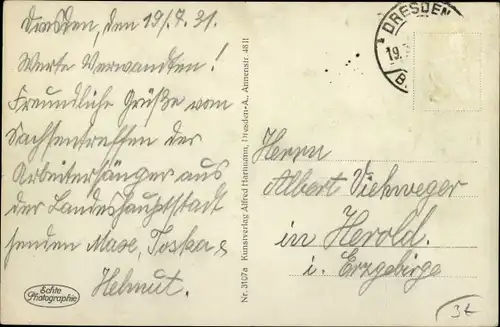 Dresden, den 19/7. 31.
Werte Verwandten!
Freundliche Grüße vom
Sachsentreffen der
Arbeitersänger aus
der Landeshauptstadt
senden Max, Toska &
Helmut.
Echte
Photographie
Nr. 3107a Kunstverlag Alfred Hartmann, Dresden-A., Annenstr. 48 II
DRESDEN
19.
Herrn
Albert Viehweger
in Herold.
i. Erzgebirge